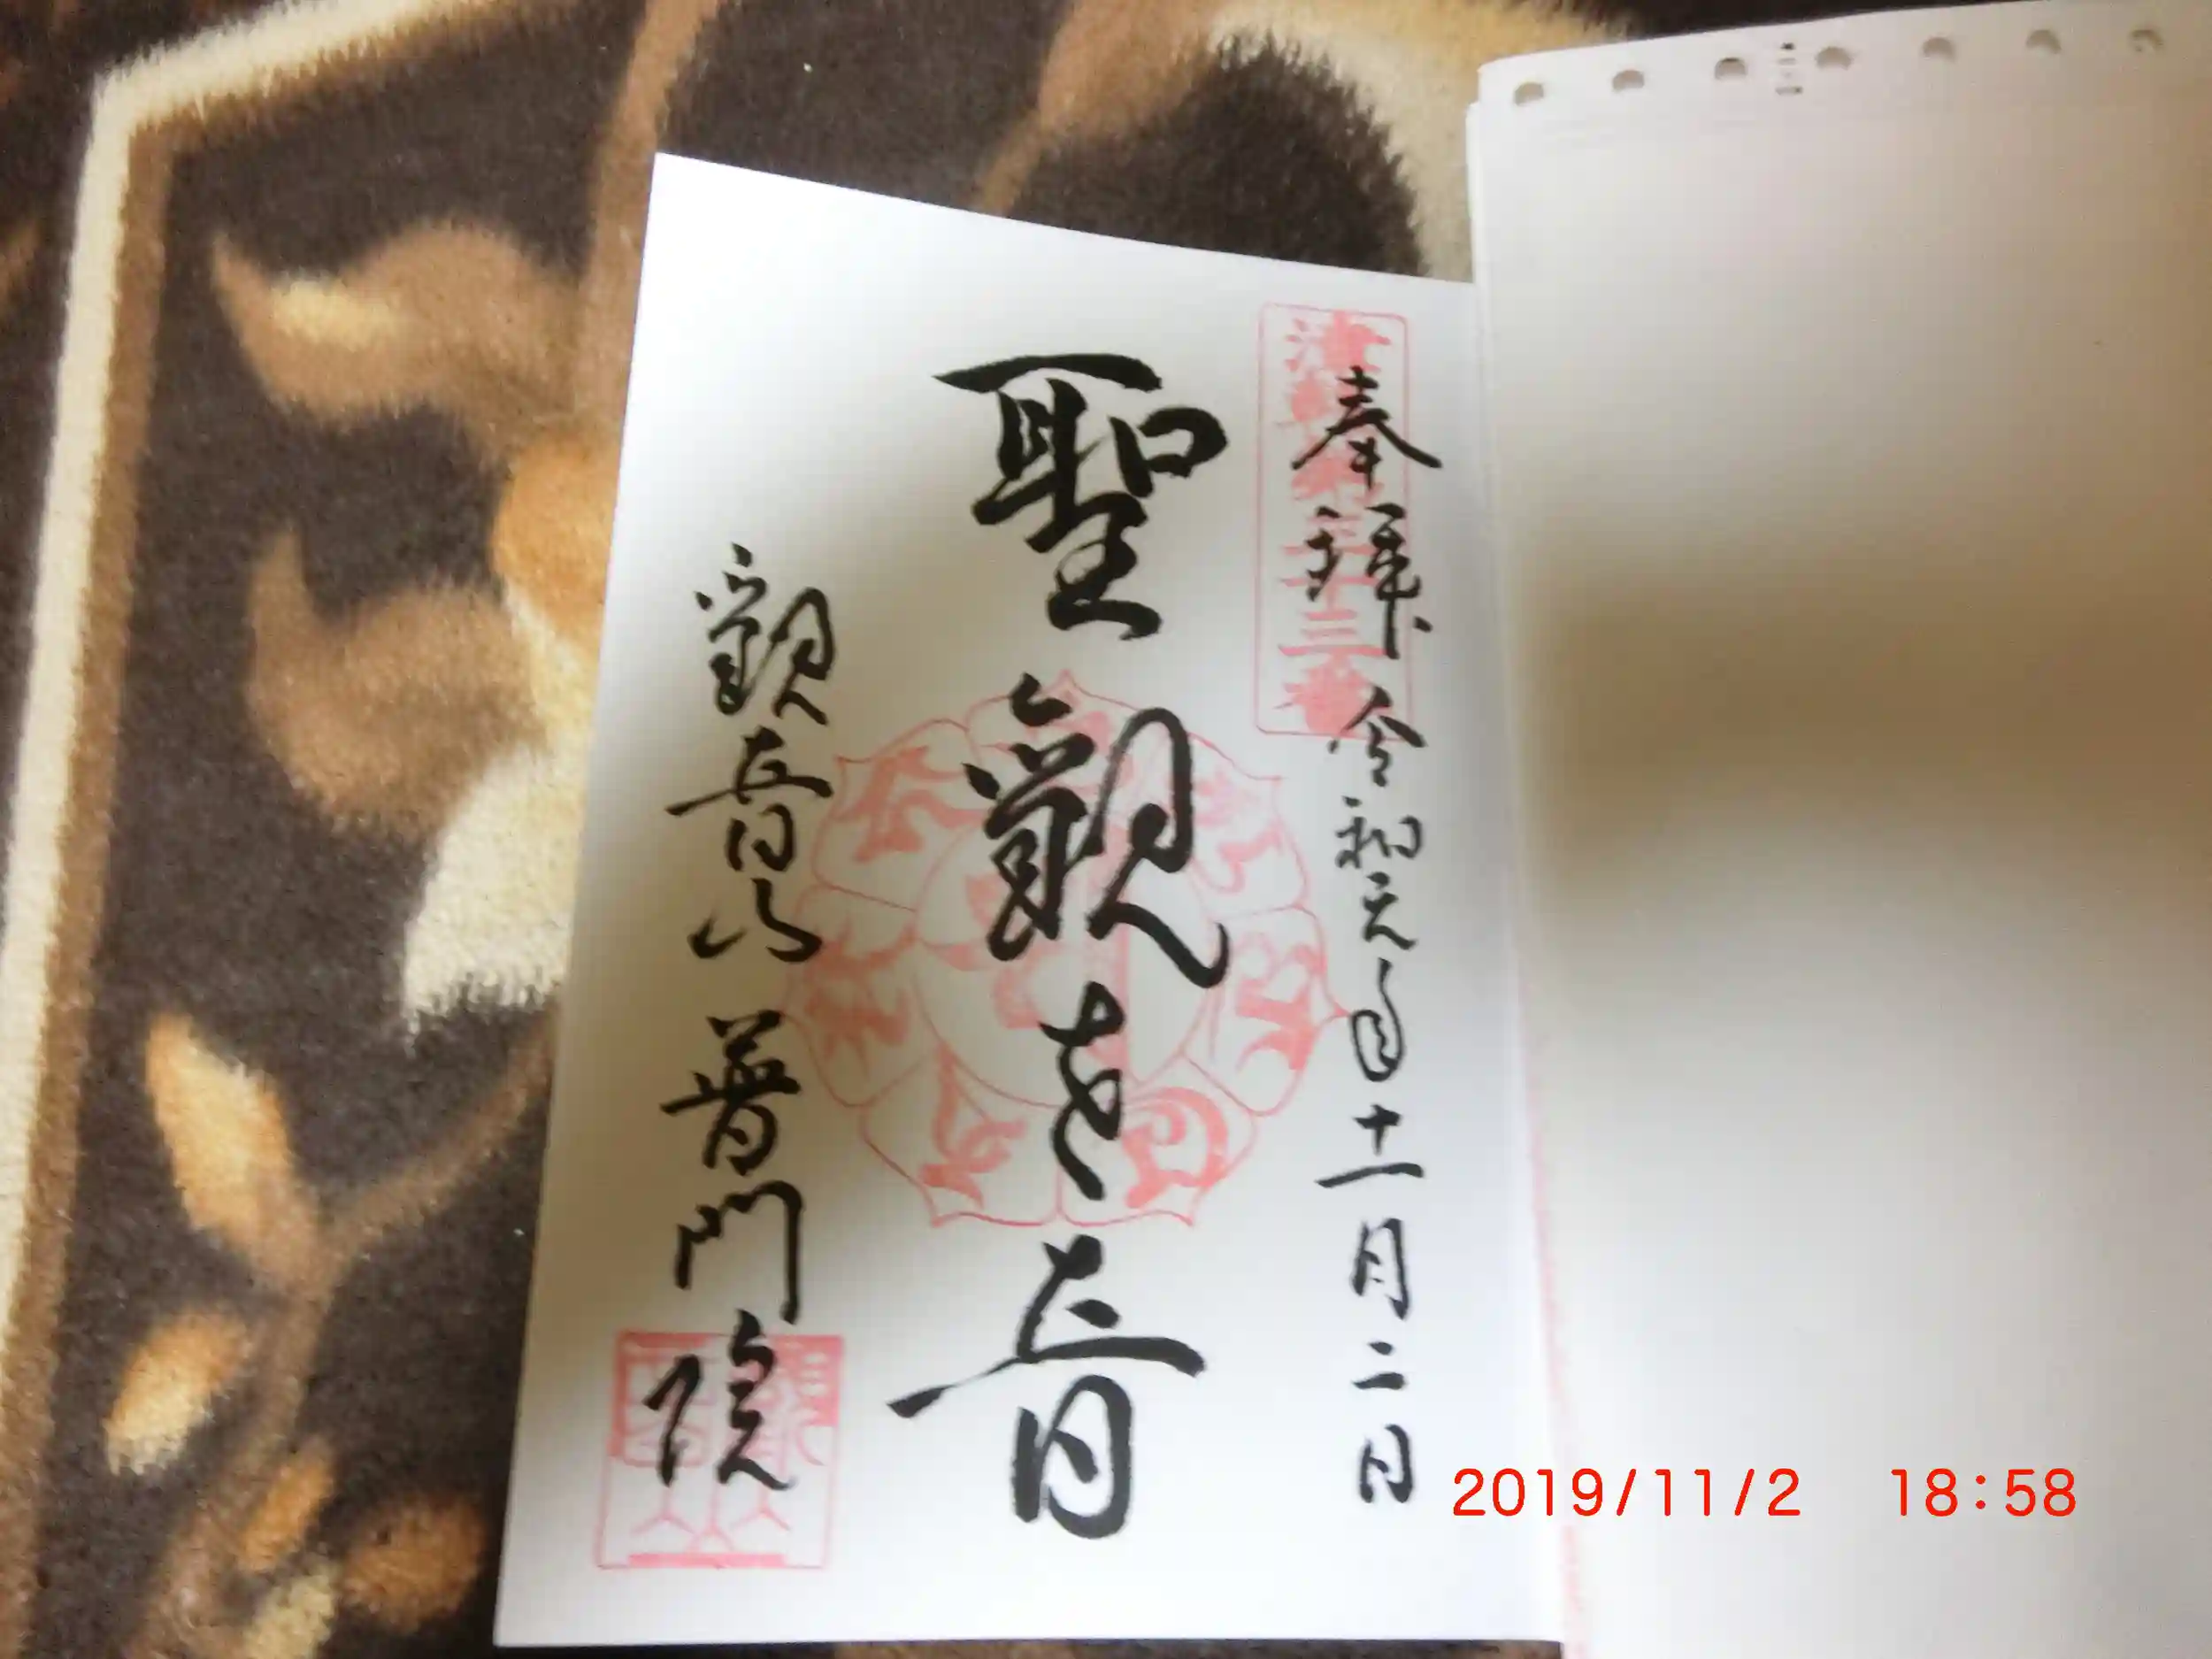 奉拝 令和元年十一月二日
聖観世音
観音山 普門院
津軽第三十三番
2019/11/2 18:58